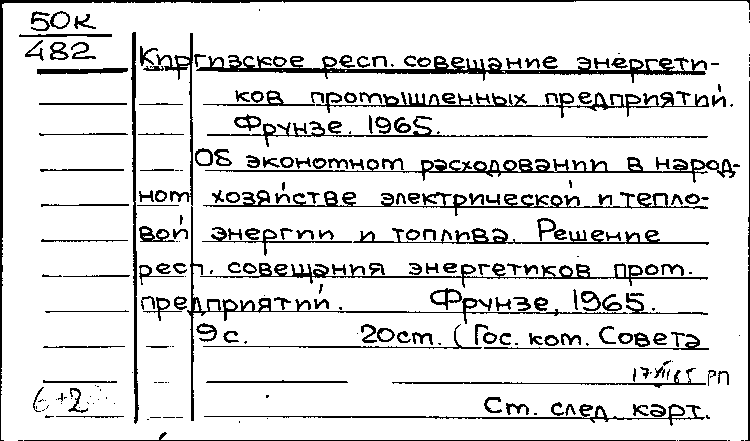 50к
482
Киргизское респ. совещание энергети-
ков промышленных предприятий.
Фрунзе. 1965.
Об экономном расходовании в народ-
ном хозяйстве электрической и тепло-
вой энергии и топлива. Решение
респ. совещания энергетиков пром.
предприятий. Фрунзе, 1965.
9 с. 20 см. (Гос. ком. Совета
17 VII 65 РП
6+2
См. след. карт.